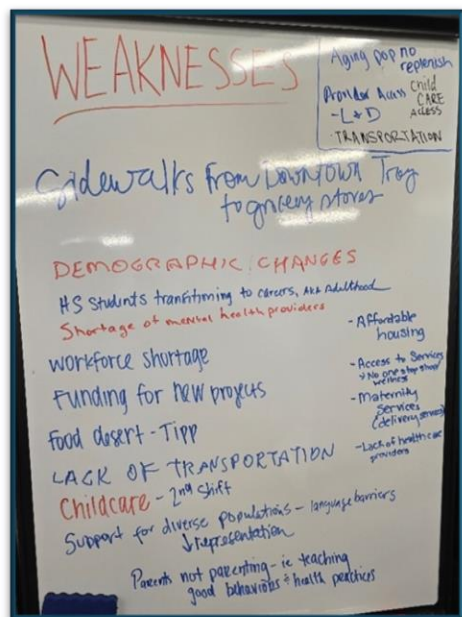 WEAKNESSES
Aging pop no
replenish
Provider Access
- L & D
Child
CARE
Access
TRANSPORTATION
Sidewalks from Downtown Troy
to grocery stores
DEMOGRAPHIC CHANGES
HS students transitioning to careers, AKA Adulthood
Shortage of mental health providers
Workforce shortage
Funding for new projects
Food desert - Tipp
LACK OF TRANSPORTATION
Childcare - 2nd shift
Support for diverse populations - language barriers
↓ representation
Parents not parenting - ie teaching
good behaviors & health practices
- Affordable
housing
- Access to Services
No one stop shop/
wellness
- Maternity
Services
(delivery services)
- Lack of healthcare
providers